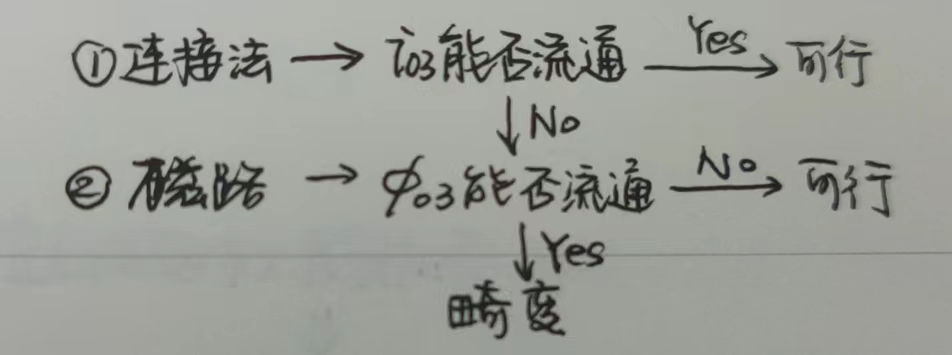 ①连接法 → i03能否流通 Yes → 可行
↓No
②磁路 → Φ03能否流通 No → 可行
↓Yes
畸变